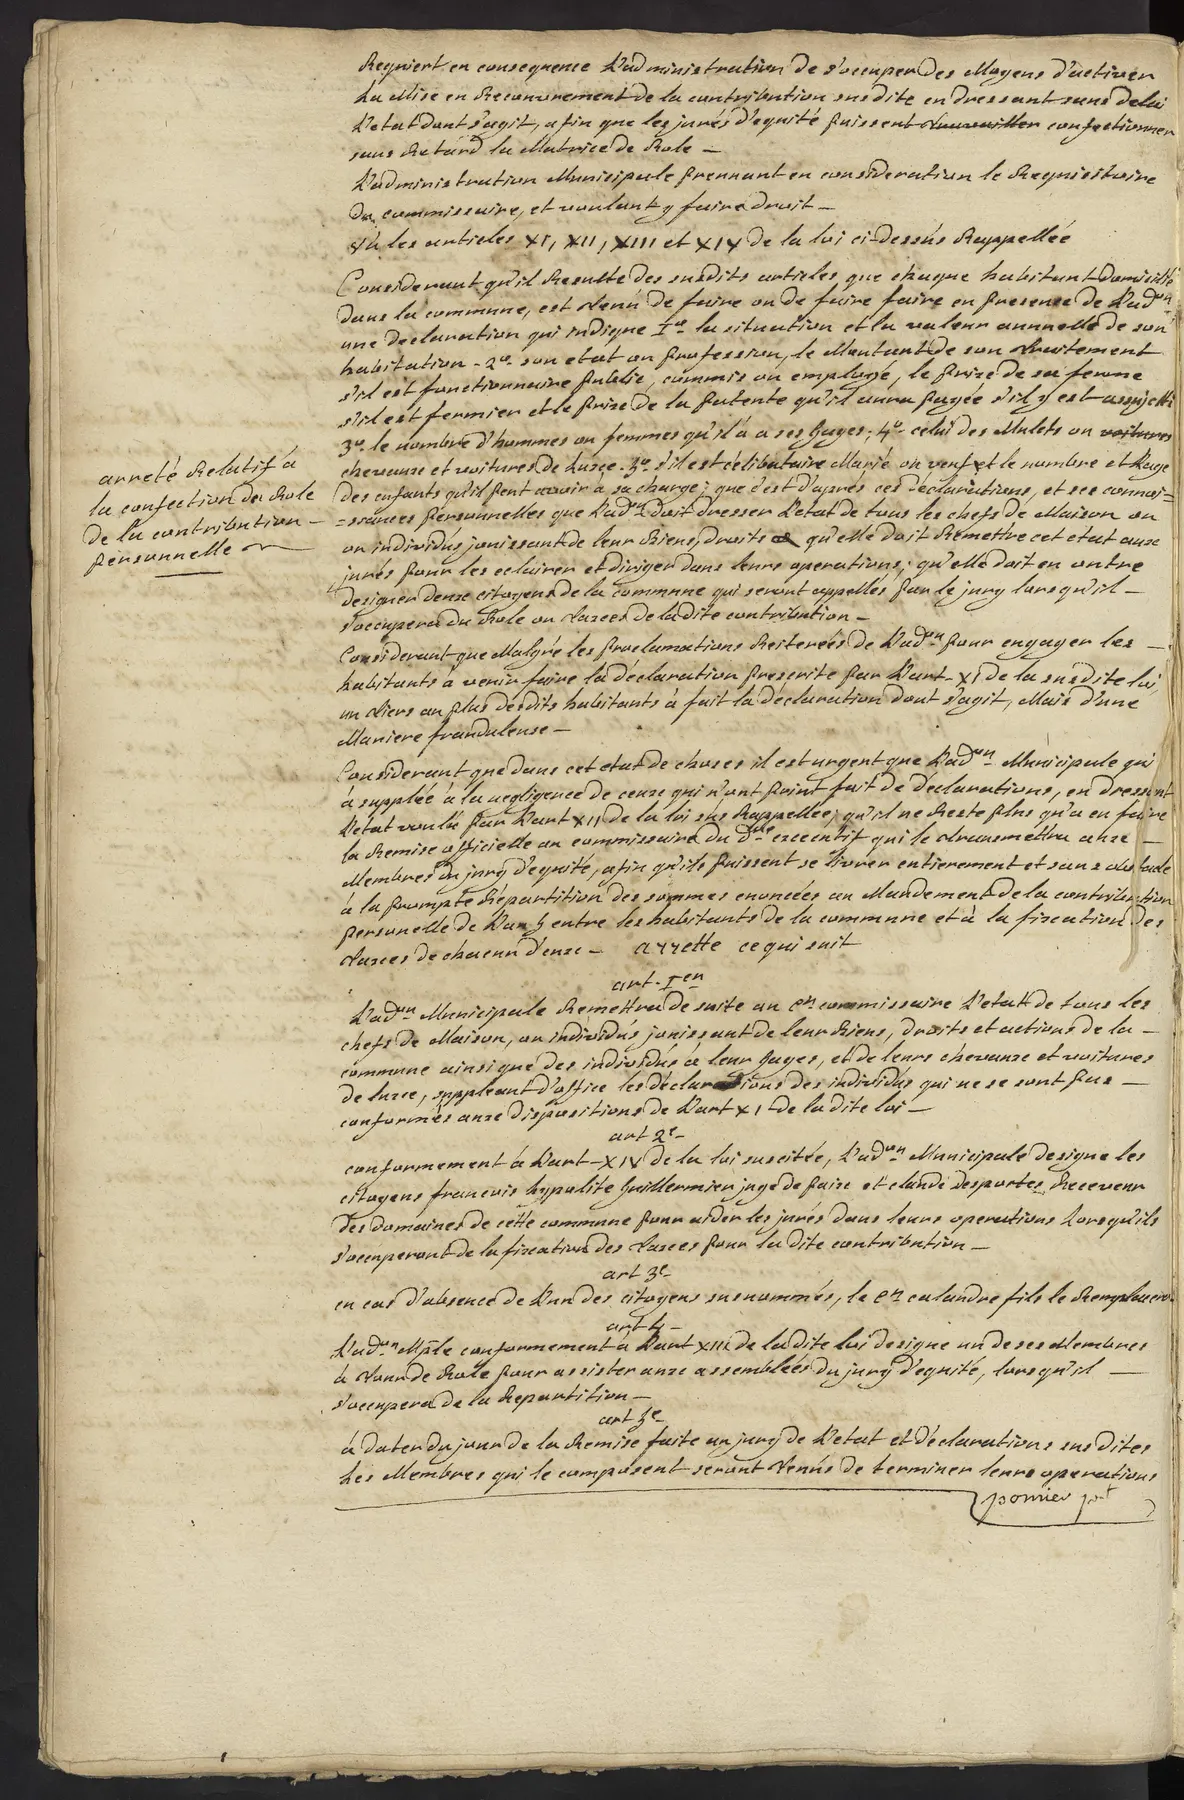 Requiert en consequence L'administration de s'occuper des Moyens d'activer
La Mise en Recouvrement de la contribution susdite en dressant sans delai
L'etat dont s'agit, afin que les jurés d'equité puissent travailler confectionner
sans Retard la Matrice de Role —
L'administration Municipale prennant en consideration le Requisitoire
du commissaire, et voulant y faire droit —
Vû les articles XI, XII, XIII et XIV de la loi ci-dessus Rappellée
Considerant qu'il Resulte des susdits articles que chaque habitant domicilié
dans la commune, est tenu de faire ou de faire faire en presence de L'adon
une declaration qui indique Io la situation et la valeur annuelle de son
habitation - 2o son etat ou profession, le Montant de son traitement
s'il est fonctionnaire public, commis ou employé, le prix de sa ferme
s'il est fermier et le prix de la patente qu'il aura payée s'il y est assujetti
3o le nombre d'hommes ou femmes qu'il a a ses Gages; 4o celui des Mulets ou voitures
chevaux et voitures de Luxe. 5o s'il est célibataire Marié ou veuf et le nombre et L'age
des enfants qu'il peut avoir à sa charge; que c'est d'après ces declarations, et ses connoi=
=ssances personnelles que L'adon doit dresser L'etat de tous les chefs de Maison ou
arreté Relatif à
la confection du Role
de la contribution —
personnelle
ou individus jouissant de leur Biens, droits qu'elle doit Remettre cet état aux
jurés pour les eclairer et diriger dans leurs operations; qu'elle doit en outre
designer deux citoyens de la commune qui seront appelles par le jury lorsqu'il —
s'occupera du Role ou taxes de la dite contribution —
Considerant que Malgré les proclamations Reiterées de L'adon pour engager les —
habitants à venir faire la déclaration prescrite par L'art - XI de la susdite loi,
un tiers au plus desdits habitants à fait la déclaration dont s'agit, Mais d'une
Maniere frauduleuse —
Considerant que dans cet etat de choses il est urgent que L'adon Municipale qui
à supplée à la negligence de ceux qui n'ont point fait de déclarations, en dressant
L'etat voulu par L'art XII de la loi sus Rappellée; qu'il ne Reste plus qu'a en faire
la Remise officielle au commissaire du dre executif qui le transmettra aux —
Membres du jury d'equité, afin qu'ils puissent se livrer entierement et sans obstacle
à la prompte Répartition des sommes enoncées au Mandement de la contribution
personelle de L'an 5 entre les habitants de la commune et à la fixation des
taxes de chacun d'eux — arrette ce qui suit
art. Ier
L'adon Municipale Remettra de suite au Cn commissaire L'etat de tous les
chefs de Maison, ou individus jouissant de leur Biens, droits et actions de la —
commune ainsi que des individus à leur Gages, et de leurs chevaux et voitures
de luxe, suppleant d'office les déclarations des individus qui ne se sont pas —
conformés aux dispositions de L'art XI de la dite loi —
art 2e
conformement à L'art - XIV de la loi suscitée, L'adon Municipale designe les
citoyens francois hypolite Guillermier juge de paix et claude desportes Receveur
des domaines de cette commune pour aider les jurés dans leurs operations Lorsqu'ils
s'occuperont de la fixation des taxes pour la dite contribution —
art 3e
en cas d'absence de L'un des citoyens susnommés, le Cn calandre fils le Remplacera
art 4 —
L'adon Mple conformement à L'art XIII de la dite loi designe un de ses Membres
à tour de Role pour assister aux assemblées du jury d'equité, lorsqu'il —
s'occupera de la Repartition —
art 5e
à dater du jour de la Remise faite au jury de L'etat et déclarations susdites
Les Membres qui le composent seront tenus de terminer leurs operations
ponnier pnt